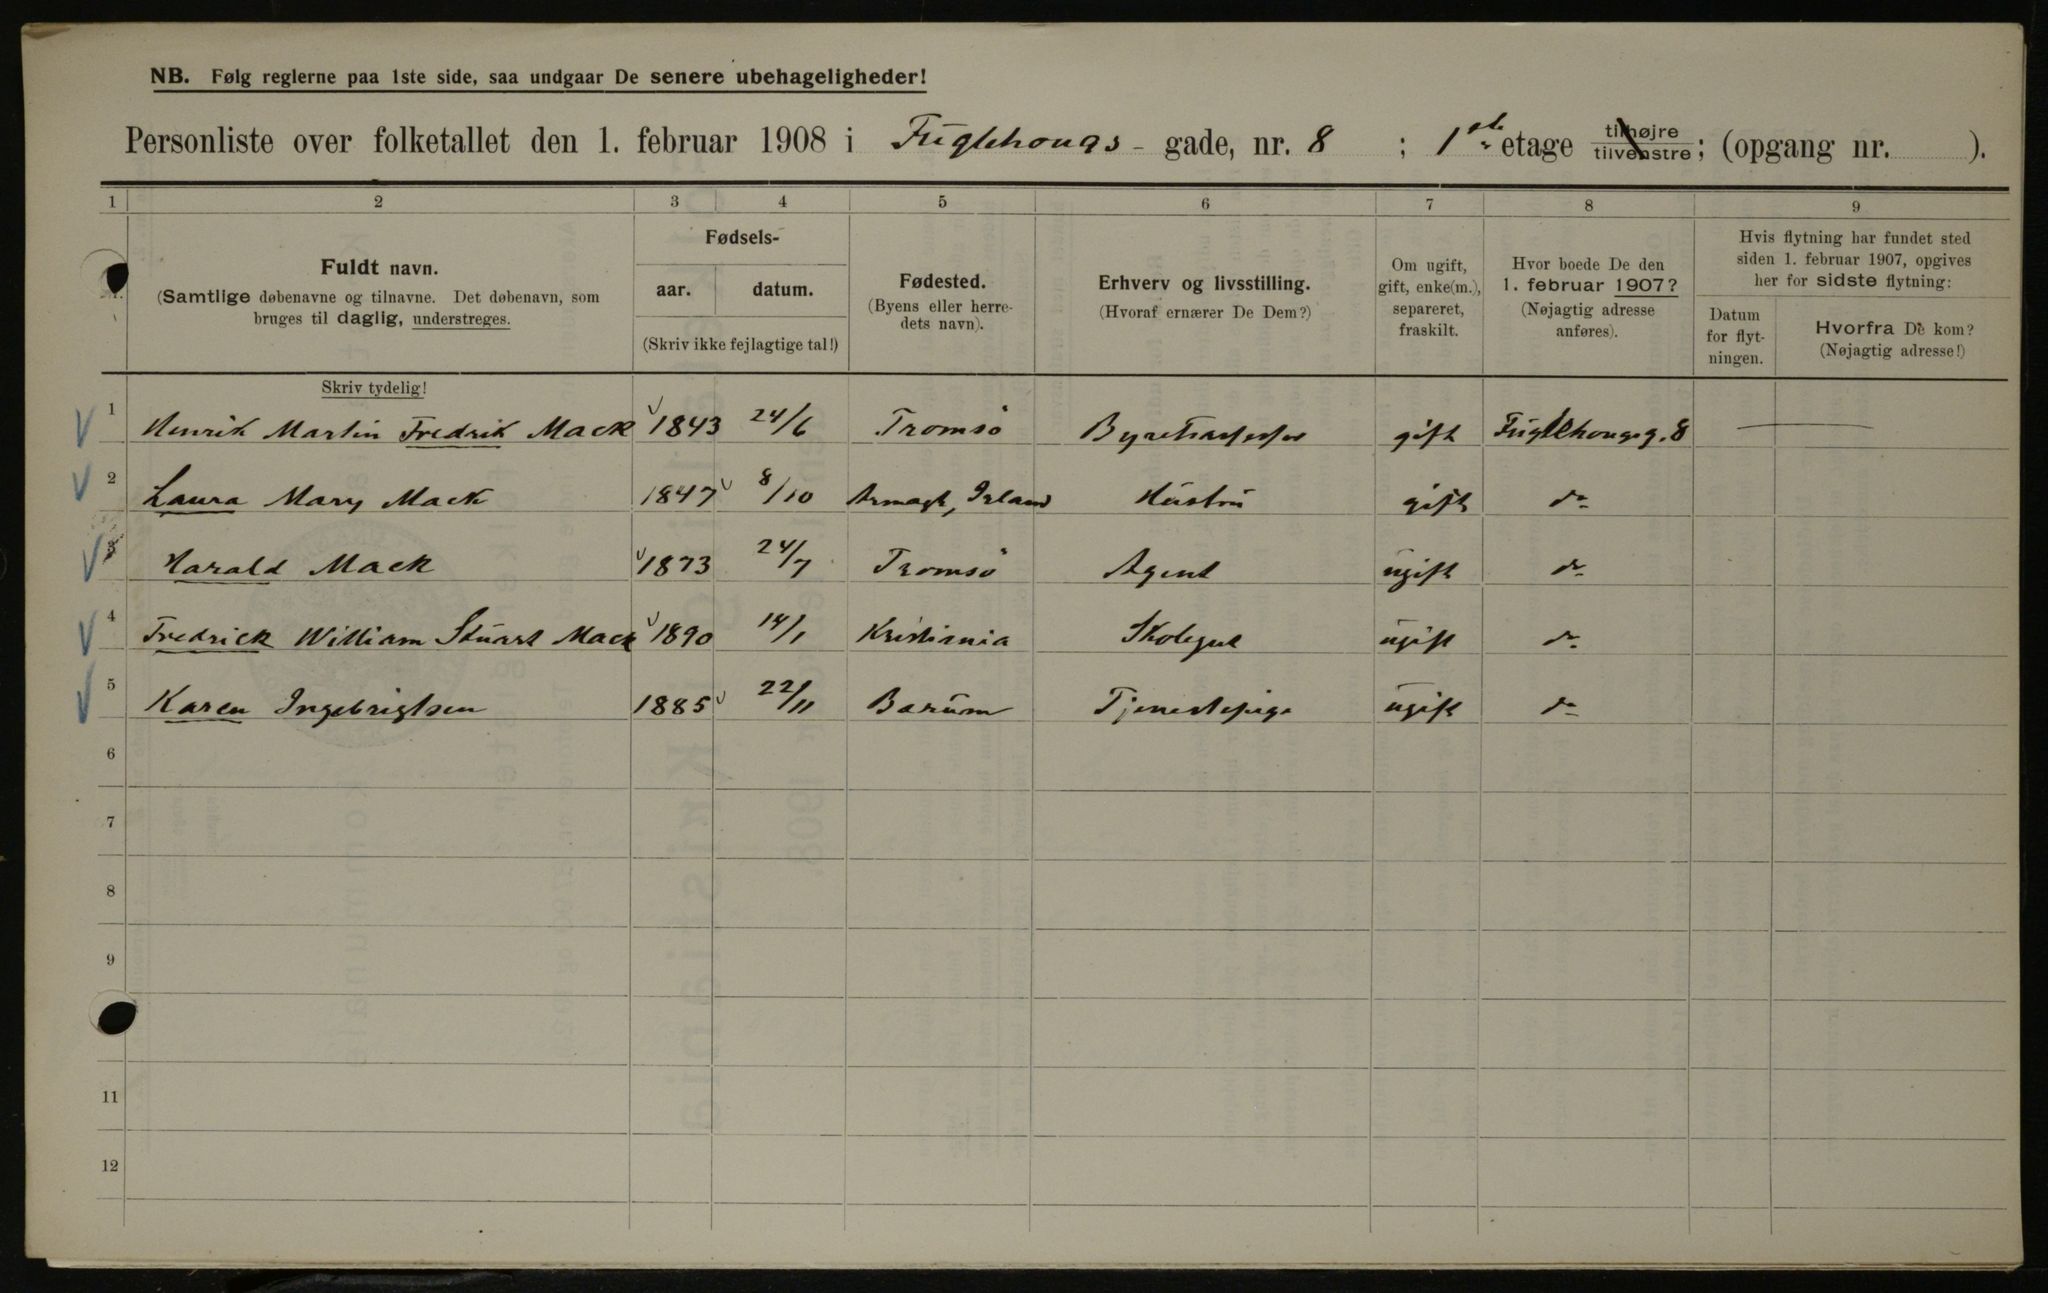 NB. Følg reglerne paa 1ste side, saa undgaar De senere ubehageligheder!
Personliste over folketallet den 1. februar 1908 i Fuglehaugs - gade, nr. 8 ; 1ste etage tilhøjre tilvenstre; (opgang nr. ).
1 2 3 4 5 6 7 8 9
Fuldt navn.
(Samtlige døbenavne og tilnavne. Det døbenavn, som
bruges til daglig, understreges.
Skriv tydelig!
Fødsels-
aar. datum.
(Skriv ikke fejlagtige tal!)
Fødested.
(Byens eller herre-
dets navn).
Erhverv og livsstilling.
(Hvoraf ernærer De Dem?)
Om ugift,
gift, enke(m.),
separeret,
fraskilt.
Hvor boede De den
1. februar 1907?
(Nøjagtig adresse
anføres).
Hvis flytning har fundet sted
siden 1. februar 1907, opgives
her for sidste flytning:
Datum
for flyt-
ningen.
Hvorfra De kom?
(Nøjagtig adresse!)
1 Henrik Martin Fredrik Mack 1843 24/6 Tromsö Byretsassessor gift Fuglehaugsg. 8
2 Laura Mary Mack 1847 8/10 Armagh, Irland Hustru gift do
3 Harald Mack 1873 24/7 Tromsö Agent ugift do
4 Fredrick William Stuart Mack 1890 14/1 Kristiania Skolegut ugift do
5 Karen Ingebrigtsen 1885 22/11 Bærum Tjenestepige ugift do
6
7
8
9
11
12